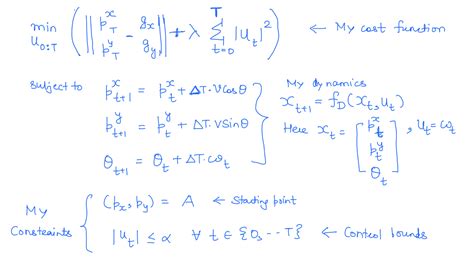 min u₀:T ( || p_T^x - g_x p_T^y g_y || + λ Σ_{t=0}^{T} |u_t|² ) ← My cost function
subject to p_{t+1}^x = p_t^x + ΔT·VCosθ
p_{t+1}^y = p_t^y + ΔT·VSinθ
θ_{t+1} = θ_t + ΔT·ω_t
My dynamics
x_{t+1} = f_D(x_t, u_t)
Here x_t = [ p_t^x p_t^y θ_t ], u_t = ω_t
My Constraints
(p_x, p_y) = A ← Starting point
|u_t| ≤ α ∀ t ∈ {0, ··· T} ← Control bounds